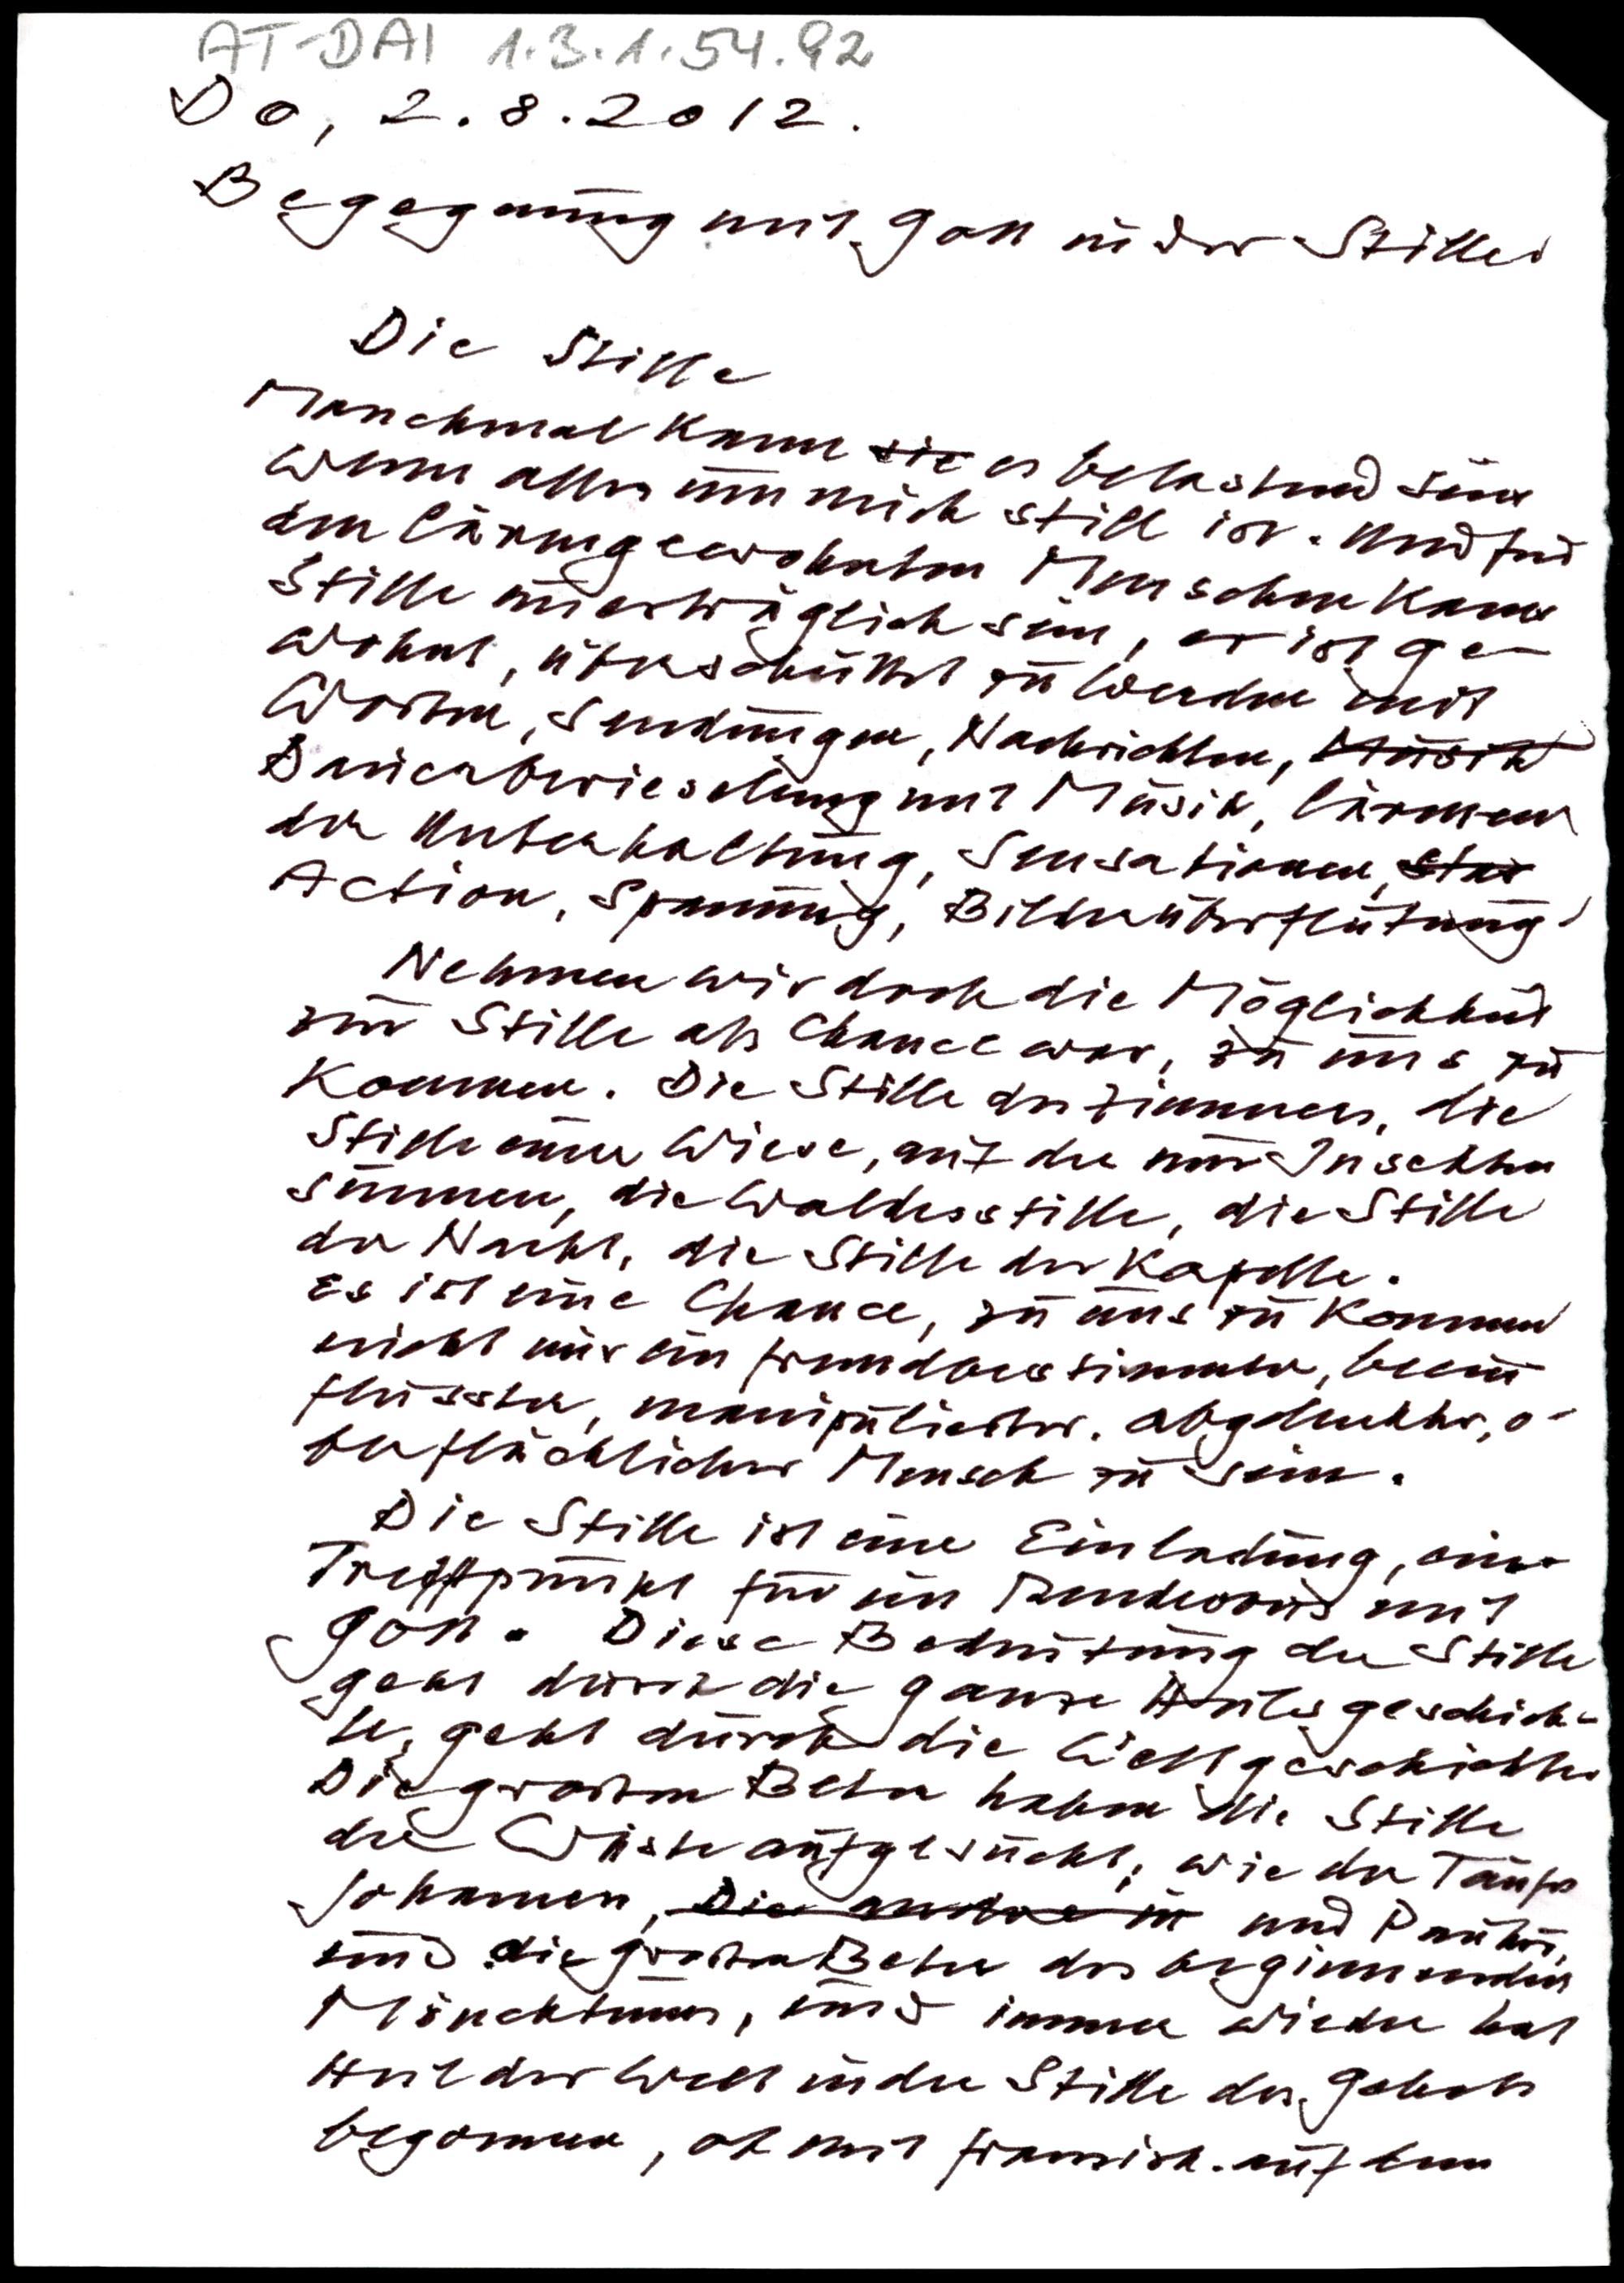 AT-DAI 1.3.1.54.92
Do, 2.8.2012.
Begegnung mit Gott in der Stille
Die Stille
Manchmal kann sie es belastend sein
wenn alles um mich still ist. Und für
den lärmgewohnten Menschen kann
Stille unerträglich sein, er ist ge-
wohnt, überschüttet zu werden mit
Worten, Sendungen, Nachrichten, Musik
Dauerberieselung mit Musik, lärmen
der Unterhaltung, Sensationen, star
Action, Spannung, Bilderüberflutung.
Nehmen wir doch die Möglichkeit
zur Stille als Chance war, zu uns zu
kommen. Die Stille des Zimmers, die
Stille einer Wiese, auf der nur Insekten
summen, die Waldesstille, die Stille
der Nacht, die Stille der Kapelle.
Es ist eine Chance, zu uns zu kommen
nicht nur ein fremdbestimmter, beein
flusster, manipulierter, abgelenkter, o-
berflächlicher Mensch zu sein.
Die Stille ist eine Einladung, ein
Treffpunkt für ein Rendevous mit
Gott. Diese Bedeutung der Stille
geht durch die ganze Heilsgeschich-
te, geht durch die Weltgeschichte.
Die grossen Beter haben die Stille
der Wüste aufgesucht, wie der Täufer
Johannes, Die in und Paulus,
und die grossen Beter des beginnenden
Mönchtums, und immer wieder hat
Heil der Welt in der Stille des Gebets
begonnen, ob mit Franzisk. auf dem